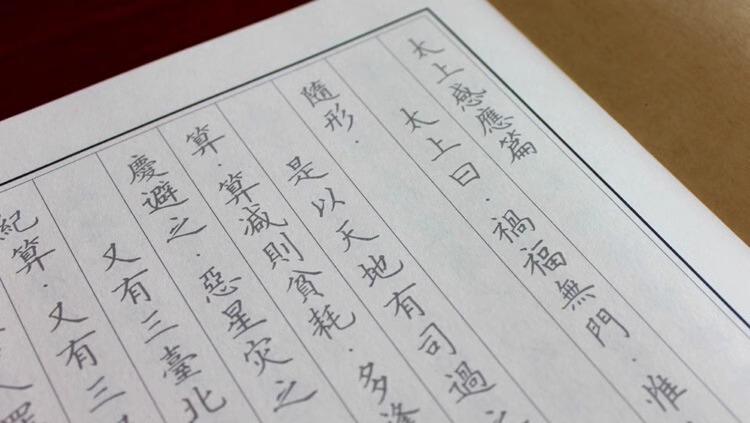 太上感應篇
太上曰．禍福無門．惟
隨形．
是以天地有司過
算．算減則貧耗．多逢
慶避之．惡星灾之
又有三臺北
紀算．又有三